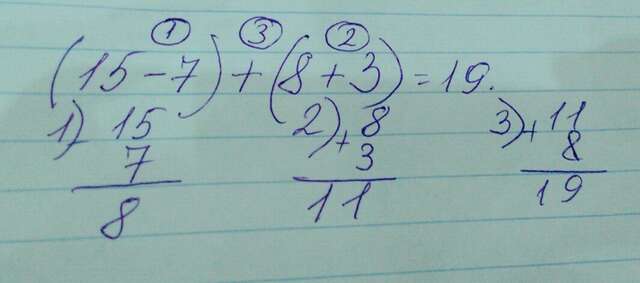 ① ③ ②
(15-7)+(8+3)=19.
1) - 15 2) + 8 3) + 11
7 3 8
8 11 19